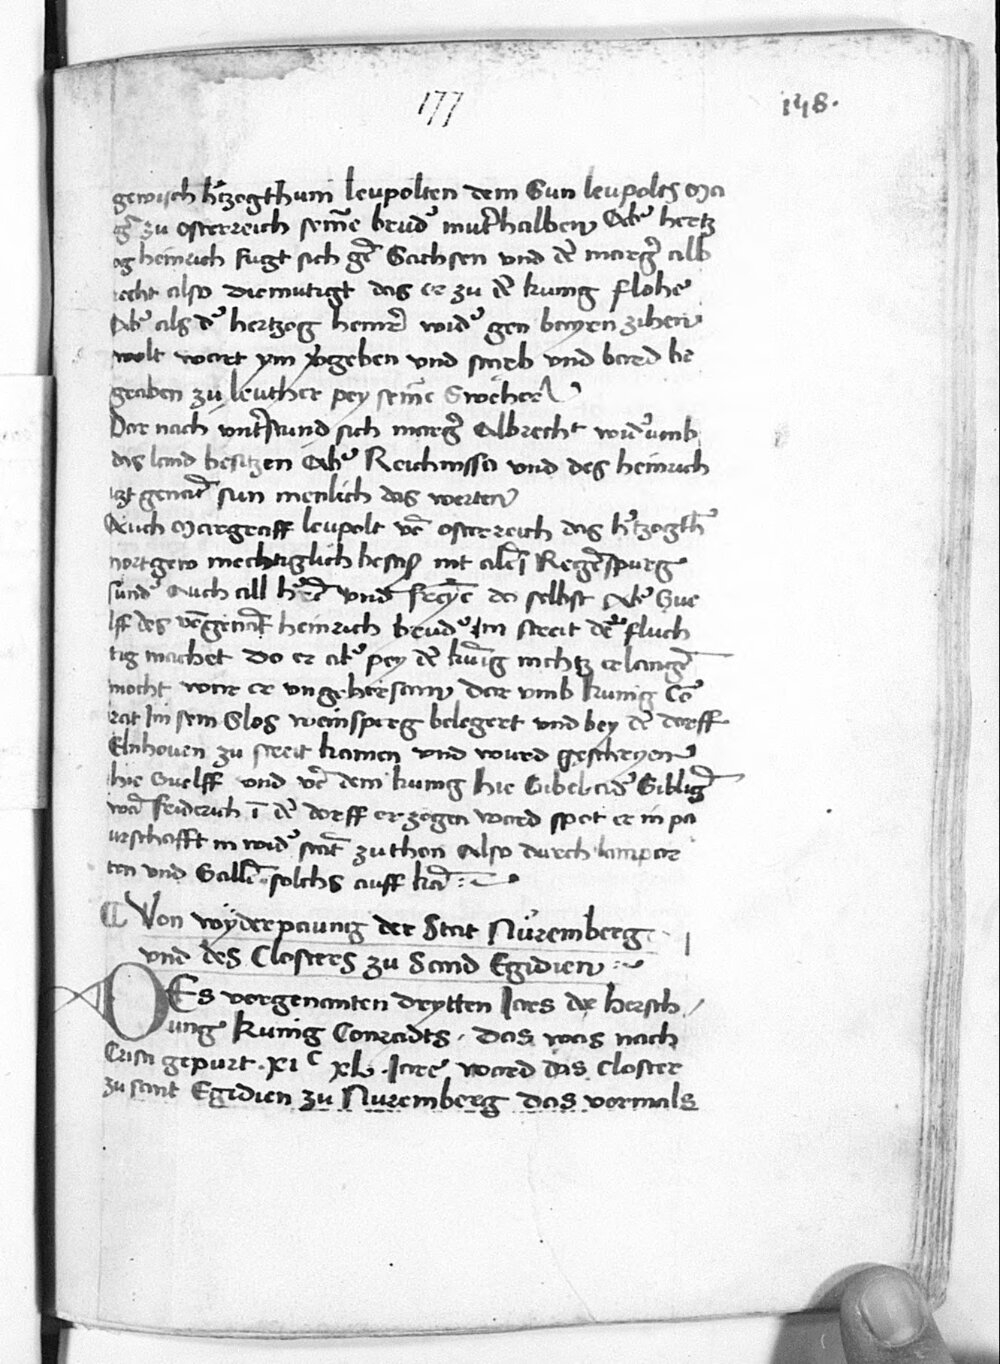 177
148.
gewisch h'tzogthum leupolten dem Sun leupolts Ma
g' zu osterreich seine brud' mut'halben Ab' hertz
og heinrich fugt sich ge' Sachsen und de' marg' alb
recht also diemutigt das er zu de' kunig flohe
Ab' als d' hertzog heinr' wid' gen bayren zihen
wolt wart ym v'geben und starb und bard be
graben zu leuther pey seine Sweher
Dar nach unt'stund sich marg' Albrecht wid'umb
das land besitzen Ab' Reichnssa und des heinrich
itzt genat' sun menlich das werten
Auch Margraff leupolt vo' osterreich das h'tzogth'
nortgew mechtiglich besas mit allei' Regespurg
sund' Auch all h're' und freye' do selbst Ab' Gue
lff des vo'genat' heinrich brud' Im streit de' fluch
tig machet Do er ab' pey de' ku'ig nichtz erlange'
mocht war er ungehorsam dar umb kunig Co'
rat Im sein Slos weinsperg belegert und bey de' dorff
Elnhoven zu streit kamen und wurd geschryen
hie Guelff und vo' dem kunig hie Gibel. od' Giblig'
wa' friderich i' de' dorff erzogen ward spot er in pa
urschafft in wid' stat' zu thon Also durch lampar
ten und Galli' solchs auff ka'
Von wyderpaung der Stat Nuremberg
und des Closters zu Sand Egidien
DEs vorgenanten drytten Jars der hersch
ung kunig Conradts. das was nach
Cristi gepurt. xi c xl. Jare ward das Closter
zu sant Egidien zu Nuremberg das vormals